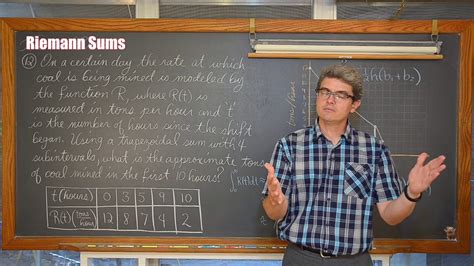 Riemann Sums
Q On a certain day the rate at which
coal is being mined is modeled by
the function R, where R(t) is
measured in tons per hour and 't'
is the number of hours since the shift
began. Using a trapezoidal sum with 4
subintervals, what is the approximate tons
of coal mined in the first 10 hours?
t (hours) 0 3 5 9 10
R(t) (tons/hour) 12 8 7 4 2
∫ R(t)dt
½h(b₁+b₂)